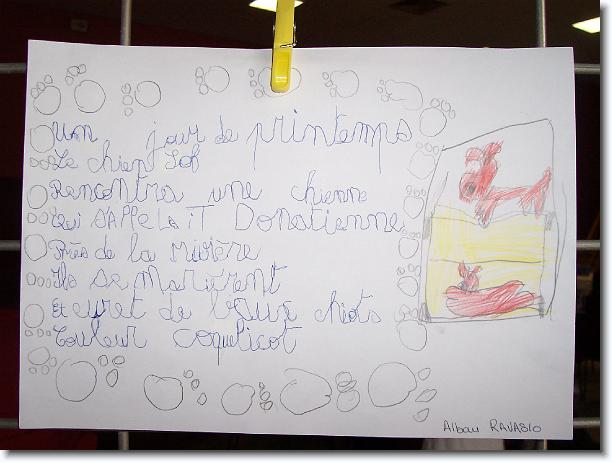 Un jour de printemps
Le chien Sof
Rencontra une chienne
Qui S'APPeLaiT Donatienne
Près de la rivière
Ils se marièrent
Et euret de beaux chiots
Couleur coquelicot
Alban RAVASIO